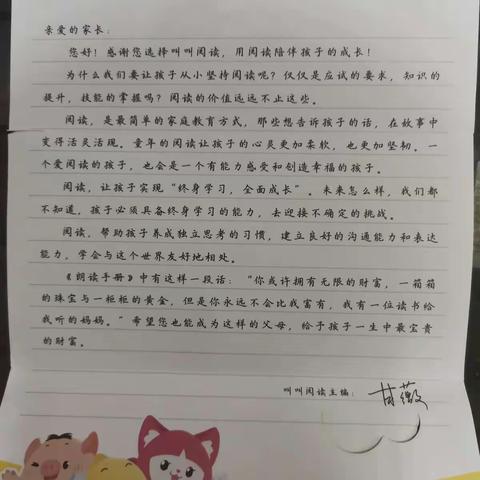 亲爱的家长：
您好！感谢您选择叫叫阅读，用阅读陪伴孩子的成长！
为什么我们要让孩子从小坚持阅读呢？仅仅是应试的要求，知识的
提升，技能的掌握吗？阅读的价值远远不止这些。
阅读，是最简单的家庭教育方式，那些想告诉孩子的话，在故事中
变得活灵活现。童年的阅读让孩子的心灵更加柔软，也更加坚韧。一
个爱阅读的孩子，也会是一个有能力感受和创造幸福的孩子。
阅读，让孩子实现“终身学习，全面成长”。未来怎么样，我们都
不知道，孩子必须具备终身学习的能力，去迎接不确定的挑战。
阅读，帮助孩子养成独立思考的习惯，建立良好的沟通能力和表达
能力，学会与这个世界友好地相处。
《朗读手册》中有这样一段话：“你或许拥有无限的财富，一箱箱
的珠宝与一柜柜的黄金，但是你永远不会比我富有，我有一位读书给
我听的妈妈。”希望您也能成为这样的父母，给予孩子一生中最宝贵
的财富。
叫叫阅读主编：甘薇